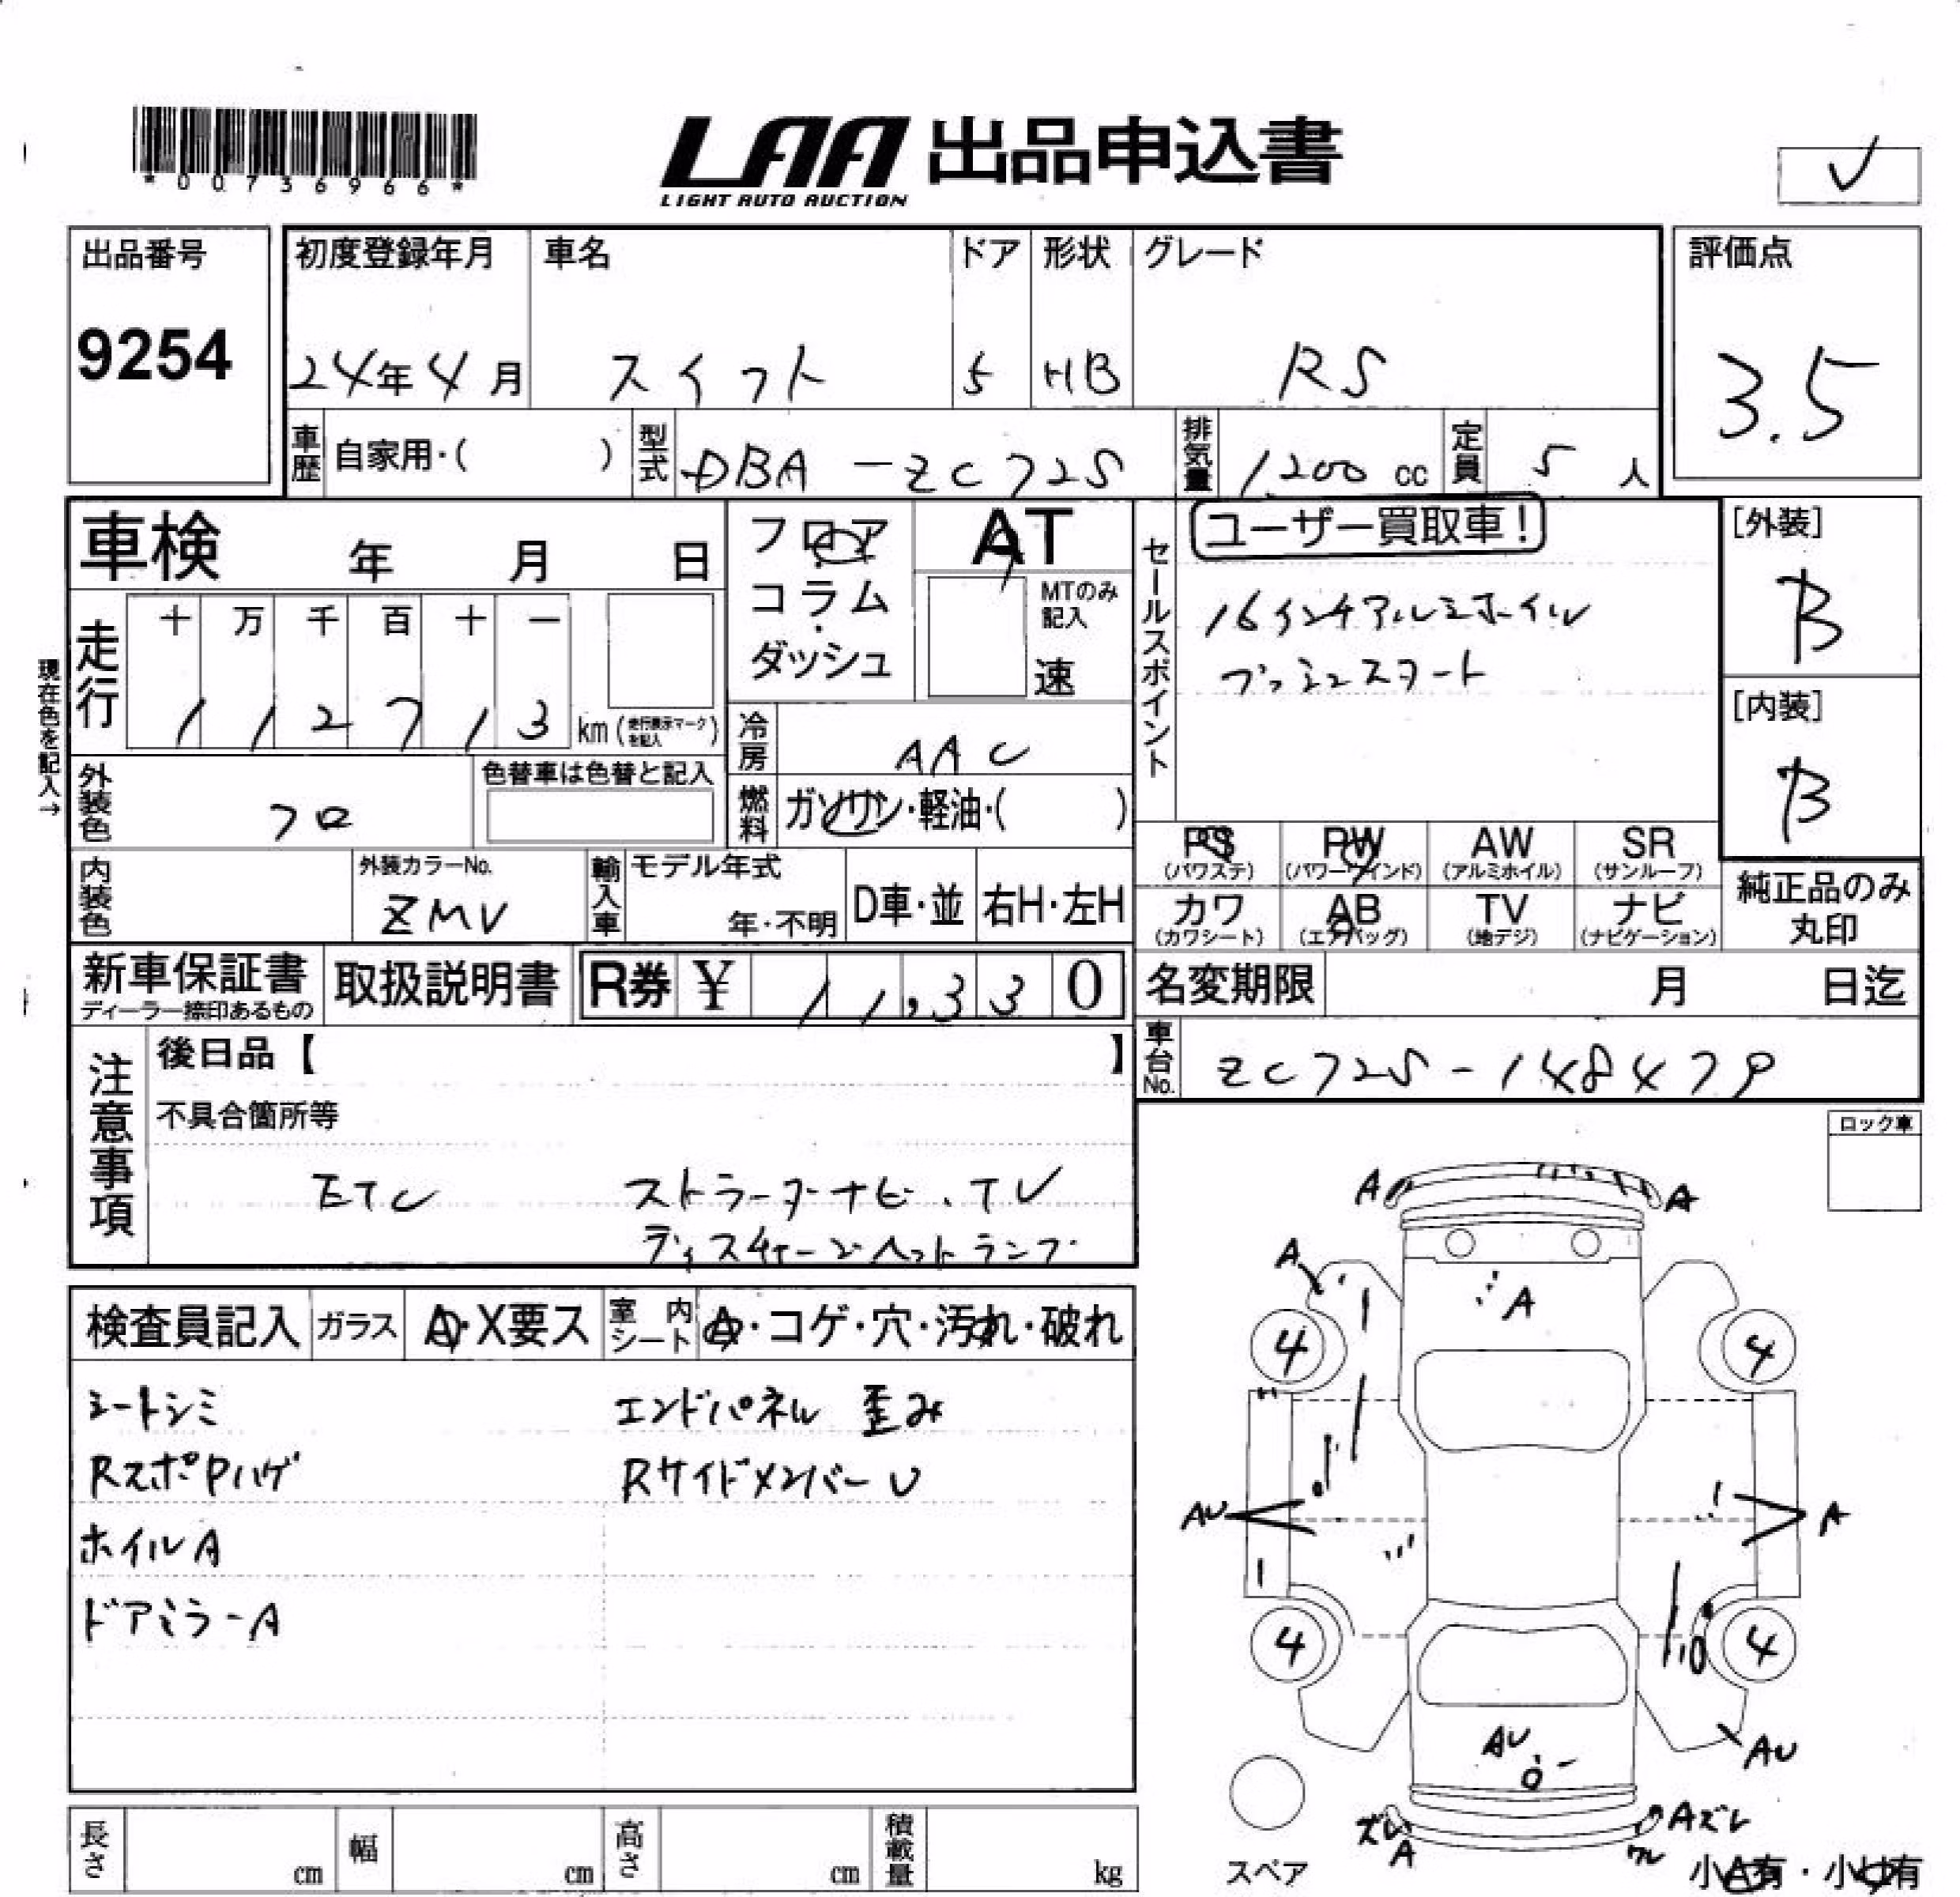 *00736966*
LAA 出品申込書
LIGHT AUTO AUCTION
✓
出品番号
9254
初度登録年月
24年4月
車名
スイフト
ドア
5
形状
HB
グレード
RS
評価点
3.5
車歴 自家用・( )
型式 DBA-ZC72S
排気量 1,200 cc
定員 5 人
車検 年 月 日
フロア
コラム
・
ダッシュ
AT
MTのみ
記入
速
セールスポイント
ユーザー買取車!
16インチアルミホイル
プッシュスタート
[外装]
B
[内装]
B
現在色を記入→
走行
十 万 千 百 十 一
1 1 2 7 1 3 km (走行表示マークを記入)
冷房 AAC
外装色 クロ
色替車は色替と記入
燃料 ガソリン・軽油・( )
PS (パワステ)
PW (パワーウインド)
AW (アルミホイル)
SR (サンルーフ)
カワ (カワシート)
AB (エアバッグ)
TV (地デジ)
ナビ (ナビゲーション)
純正品のみ
丸印
内装色
外装カラーNo.
ZMV
輸入車
モデル年式
年・不明
D車・並
右H・左H
新車保証書
ディーラー捺印あるもの
取扱説明書
R券 ¥ 11,330
名変期限 月 日迄
車台No. ZC72S-148479
注意事項
後日品【 】
不具合箇所等
ETC ストラーダナビ.TV
ディスチャージヘットランプ
ロック車
検査員記入
ガラス A・X要ス
室内シート A・コゲ・穴・汚れ・破れ
シートシミ エンドパネル 歪み
RスポPハゲ RサイドメンバーU
ホイルA
ドアミラーA
A A
A
A
4 4
AU A
4 4
AU
AU
ズレ
A
Aズレ
ワレ
スペア
小A有・小U有
長さ cm
幅 cm
高さ cm
積載量 kg